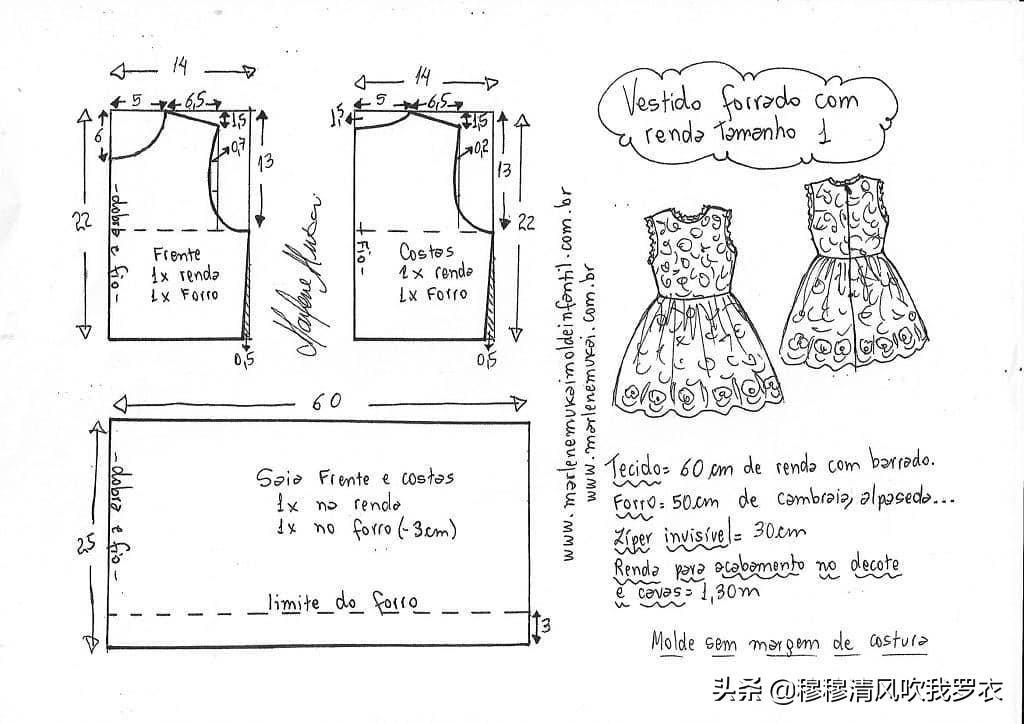 14
5
6,5
6
1,5
0,7
13
22
-dobra e fio-
Frente
1x renda
1x Forro
0,5
14
5
6,5
1,5
1,5
0,2
13
22
Fio
Costas
1x renda
1x Forro
0,5
Marlene Mukai
www.marlenemukaimoldeinfantil.com.br
www.marlenemukai.com.br
Vestido forrado com
renda Tamanho 1
60
25
-dobra e fio-
Saia Frente e costas
1x na renda
1x no forro (-3cm)
limite do forro
3
Tecido= 60cm de renda com barrado.
Forro= 50cm de cambraia, alpaseda...
Zíper invisível= 30cm
Renda para acabamento no decote
e cavas= 1,30m
Molde sem margem de costura
头条 @穆穆清风吹我罗衣